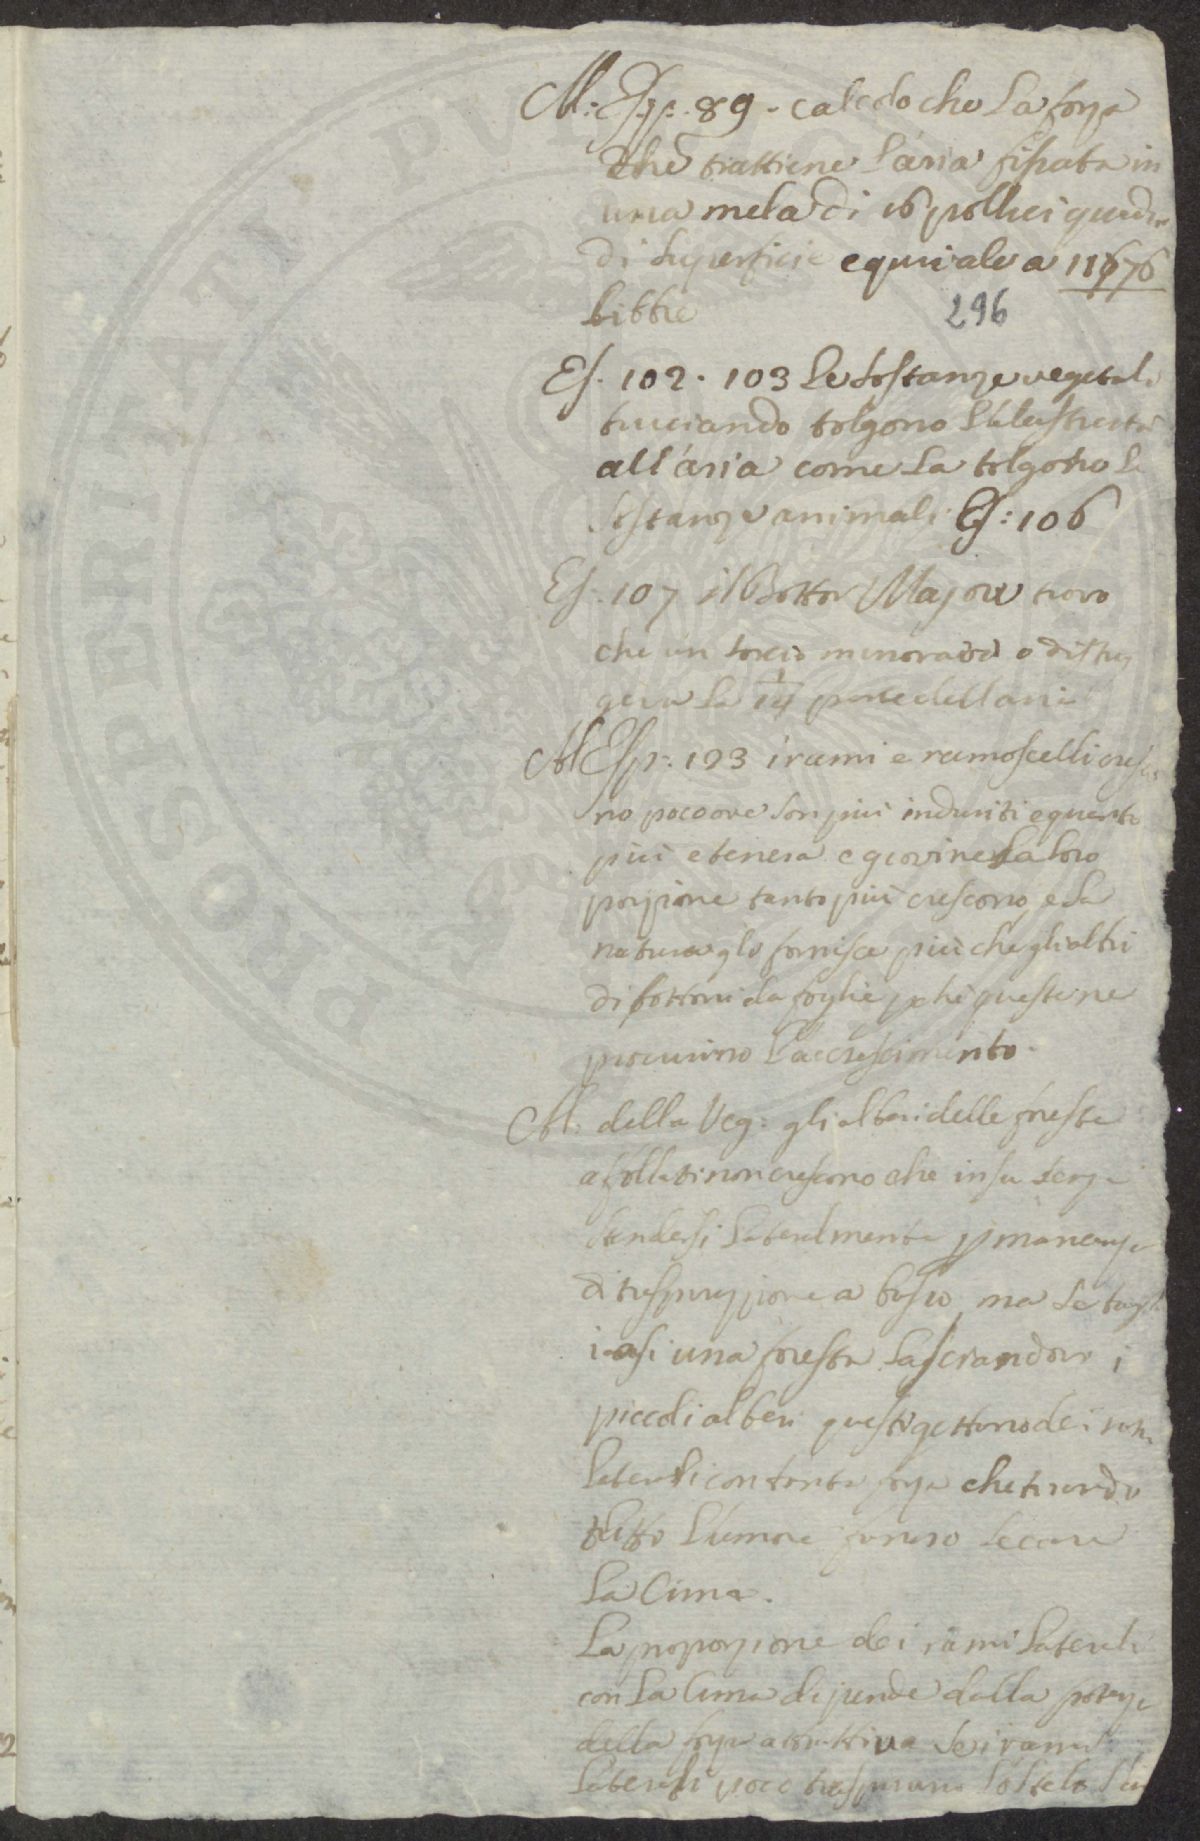 M: Esp. 89. calcolo che la forza
che trattiene l'aria fissata in
una mela di 16 pollici quadr
di superficie equivale a 11676
libbre
296
Es. 102. 103 le sostanze vegetali
bruciando tolgono l'elasticità
all'aria come la tolgono le
sostanze animali Es: 106
Es. 107 il Dottor Majow trovò
che un sorcio minorava o distrug
geva la 1/14 parte dell'aria
M Esp: 123 i rami e ramoscelli cresco
no poco ove son più induriti e quanto
più è tenera e giovine la loro
porzione tanto più crescono, e la
natura gl'o fornisce più che gli altri
di bottoni da foglie pche queste ne
procurino l'accrescimento.
M: della Veg: gli alberi delle foreste
afollati non crescono che in su senza
stendersi lateralmente p mancanza
di traspirazione a basso, ma se tagl
iasi una foresta lasciandovi i
piccoli alberi questi gettono de i rami
laterali con tanta forza che tirando
tutto l'umore fanno secare
la Cima.
La proporzione dei rami laterali
con la Cima dipende dalla potenza
della forza attrattiva se i rami
laterali poco traspirano lo stelo